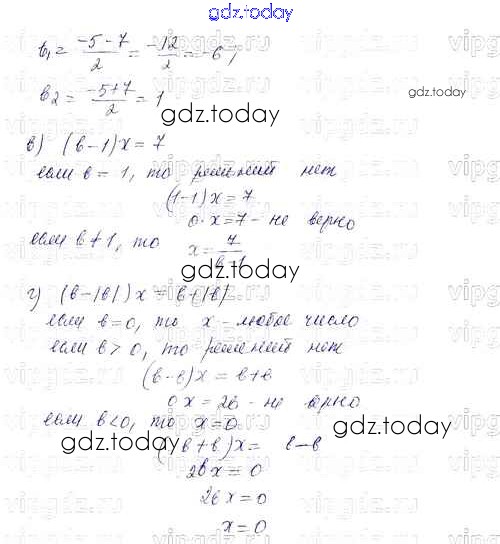 gdz.today
b₁ = (-5-7)/2 = -12/2 = -6;
b₂ = (-5+7)/2 = 1
gdz.today
gdz.today
в) (b-1)x = 7
если b = 1, то решений нет
(1-1)x = 7
0·x = 7 - не верно
если b ≠ 1, то x = 7/(b-1)
gdz.today
г) (b-|b|)x = b+|b|
если b = 0, то x - любое число
если b > 0, то решений нет
(b-b)x = b+b
0x = 2b - не верно
если b<0, то x=0
gdz.today
gdz.today
b+b)x = b-b
2bx = 0
2bx = 0
x = 0
vipgdz.ru